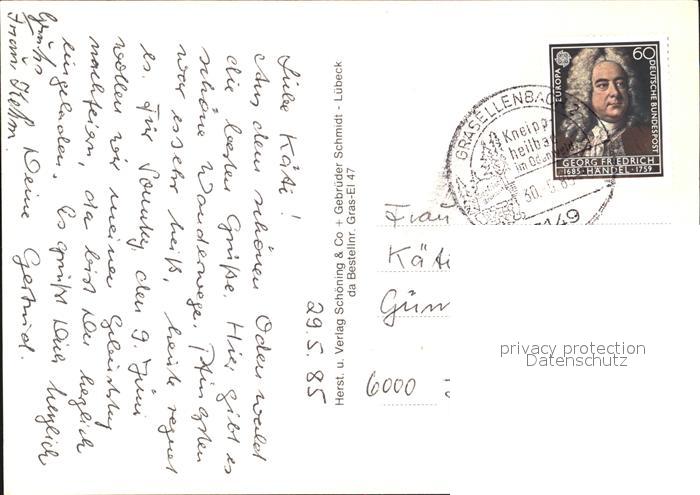 Liebe Käti!
Aus dem schönen Odenwald
die besten Grüße. Hier gibt es
schöne Wanderwege. Pfingsten
war es sehr heiß, heute regnet
es. Für Sonntag, den 9. Juni
wollen wir meinen Geburtstag
nachfeiern, da bist Du herzlich
eingeladen. Es grüßt Dich herzlich
Deine Gertrud.
Grüße
Frau
29.5.85
Herst. u. Verlag Schöning & Co + Gebrüder Schmidt - Lübeck
da Bestellnr. Gras-El 47
EUROPA
60
DEUTSCHE BUNDESPOST
GEORG FRIEDRICH
1685 HÄNDEL 1759
GRASELLENBACH
Kneipp
heilbad
im Odenwald
6149
Frau
Käti
Gün
6000
privacy protection
Datenschutz